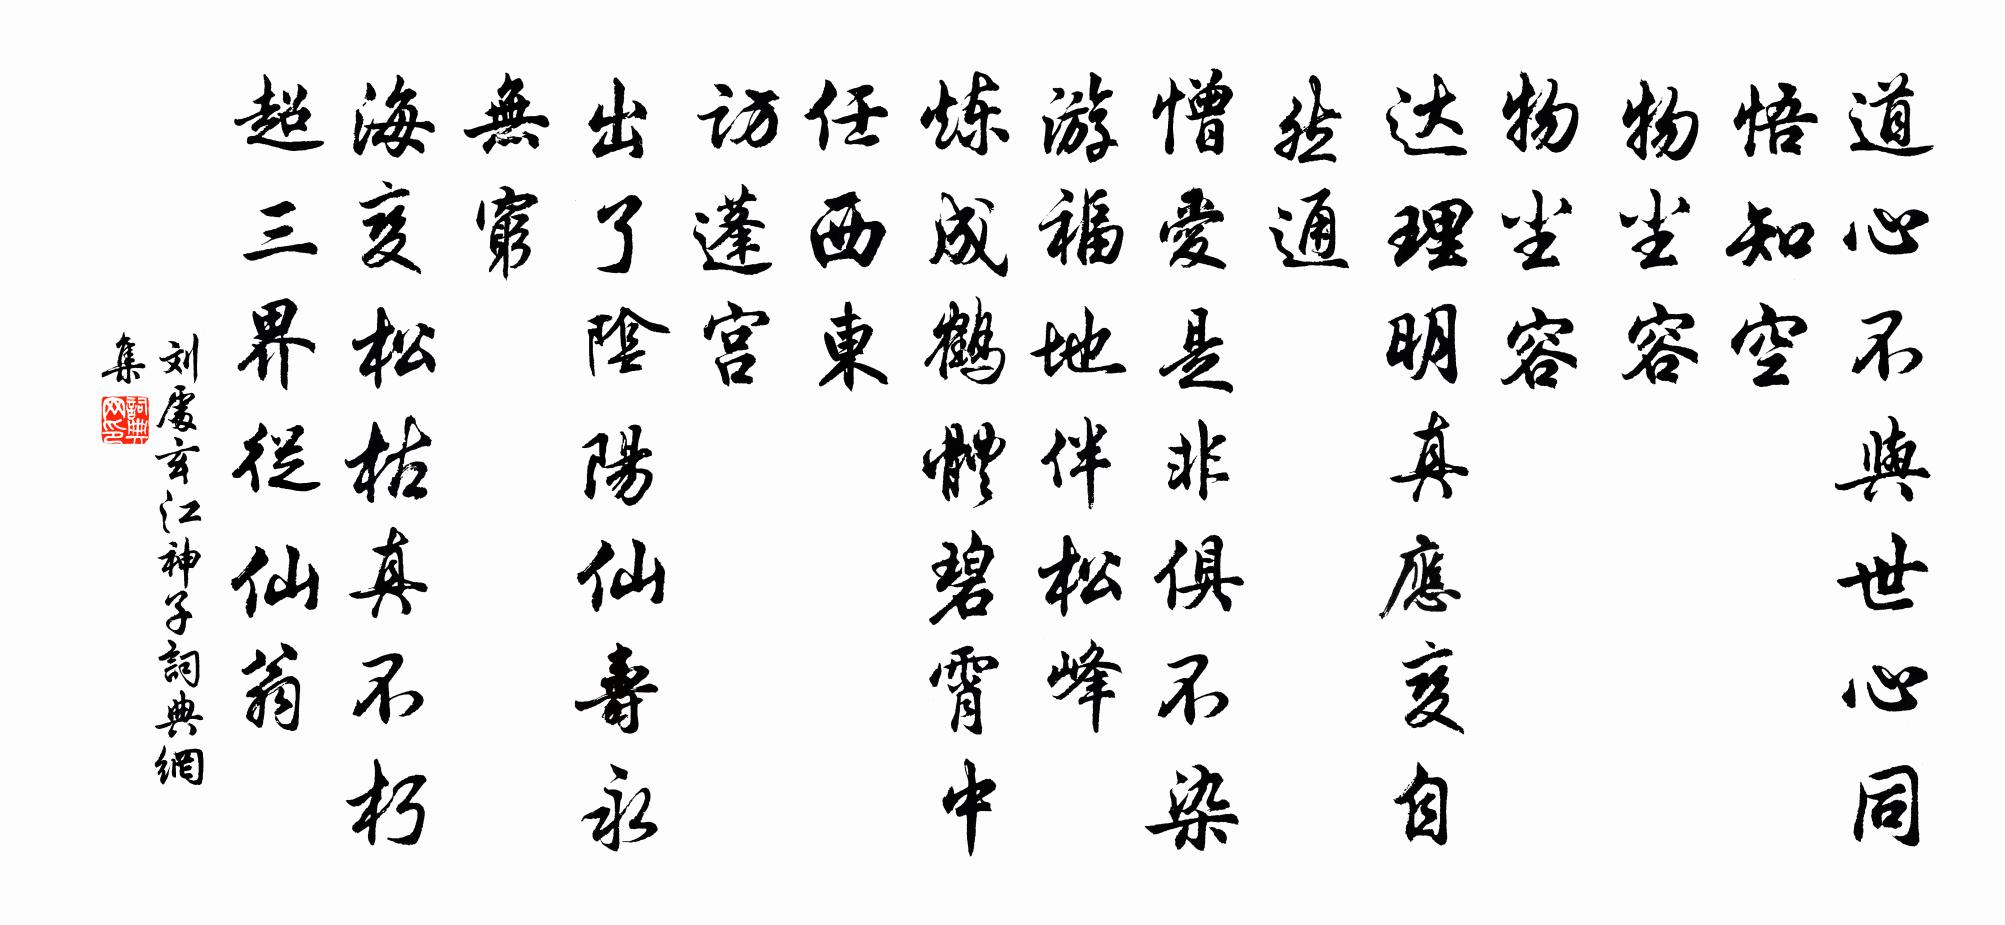 道心不與世心同
悟知空
物尘容
物尘容
达理明真應变自
然通
憎愛是非俱不染
游福地伴松峰
炼成鶴體碧霄中
任西東
訪蓬宮
出了陰陽仙壽永
無窮
海变松枯真不朽
超三界從仙翁
刘處玄江神子詞典網
集
詞典
网印